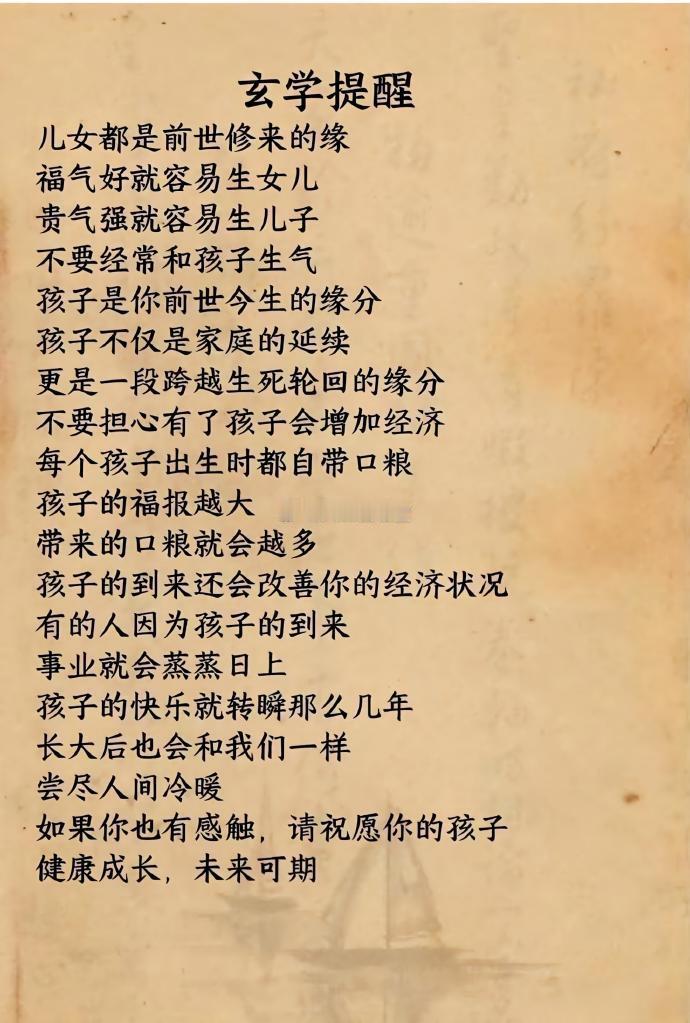 玄学提醒
儿女都是前世修来的缘
福气好就容易生女儿
贵气强就容易生儿子
不要经常和孩子生气
孩子是你前世今生的缘分
孩子不仅是家庭的延续
更是一段跨越生死轮回的缘分
不要担心有了孩子会增加经济
每个孩子出生时都自带口粮
孩子的福报越大
带来的口粮就会越多
孩子的到来还会改善你的经济状况
有的人因为孩子的到来
事业就会蒸蒸日上
孩子的快乐就转瞬那么几年
长大后也会和我们一样
尝尽人间冷暖
如果你也有感触，请祝愿你的孩子
健康成长，未来可期